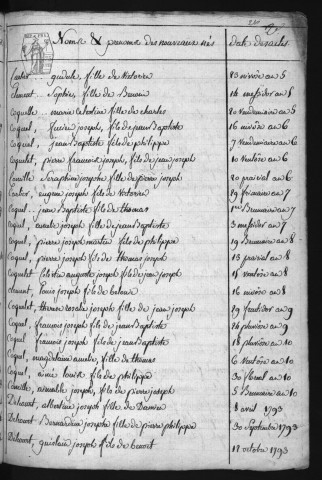 Noms & prenoms des nouveaux nés Date des actes
Cartier gudule, fille de Victorien 23 nivose an 5
Clement .. Sophie, fille de Benoit 14 messidor an 5
Coquelle .. marie celestine fille de charles 20 Vendemiaire an 5
Coquel, firmin joseph, fils de jean Baptiste 16 nivose an 6
Coquel, jean Baptiste fils de philippe 7 Vendemiaire an 6
Coquelet, pierre francois joseph, fils de jean joseph 10 Ventose an 6
Camille Seraphine joseph, fille de pierre joseph 20 prairial an 6
Carlier, eugene joseph fils de Victorien 29 frimaire an 7
Coquel .. jean Baptiste fils de thomas 1er Brumaire an 7
Coquel, aimable joseph, fils de jean Baptiste 3 messidor an 7
Coquel, pierre joseph martin fils de philippe 19 Brumaire an 8
Coquel, pierre joseph fils de thomas joseph 13 prairial an 8
Coquelet Celestin auguste joseph fils de jean joseph 18 Ventose an 8
Clement, louis joseph fils de 16 nivose an 8
Coquelet, therese rosalie joseph fille de jean joseph 29 fructidor an 9
Coquel, françois joseph fils de jean Baptiste 26 pluviose an 9
Coquel, françois joseph fils de jean Baptiste 18 pluviose an 10
Coquel, magdelaine amelie, fille de thomas 6 Ventose an 10
Coquel, aimée louise fille de philippe 30 floreal an 10
Camille, aimable joseph, fils de pierre joseph 5 Brumaire an 10
Dehauct, albertine joseph fille de Damien 8 avril 1793
Dehauct Bernardine joseph fille de pierre philippe 30 Septembre 1793
Dehauct, guislain joseph fils de benoit 11 octobre 1793